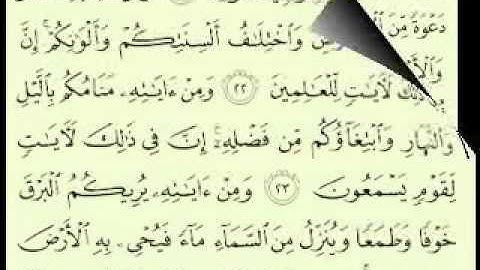 دَعْوَةً مِّنَ
وَٱخْتِلَٰفُ أَلْسِنَتِكُمْ وَأَلْوَٰنِكُمْ ۚ إِنَّ
ذَٰلِكَ لَءَايَٰتٍ لِّلْعَٰلِمِينَ ٢٢ وَمِنْ ءَايَٰتِهِۦ مَنَامُكُم بِٱلَّيْلِ
وَٱلنَّهَارِ وَٱبْتِغَآؤُكُم مِّن فَضْلِهِۦٓ ۚ إِنَّ فِى ذَٰلِكَ لَءَايَٰتٍ
لِّقَوْمٍ يَسْمَعُونَ ٢٣ وَمِنْ ءَايَٰتِهِۦ يُرِيكُمُ ٱلْبَرْقَ
خَوْفًا وَطَمَعًا وَيُنَزِّلُ مِنَ ٱلسَّمَآءِ مَآءً فَيُحْىِۦ بِهِ ٱلْأَرْضَ